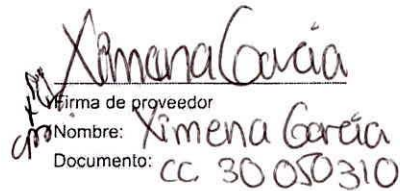 Ximena García
Firma de proveedor
Nombre: Ximena García
Documento: CC 30 050310